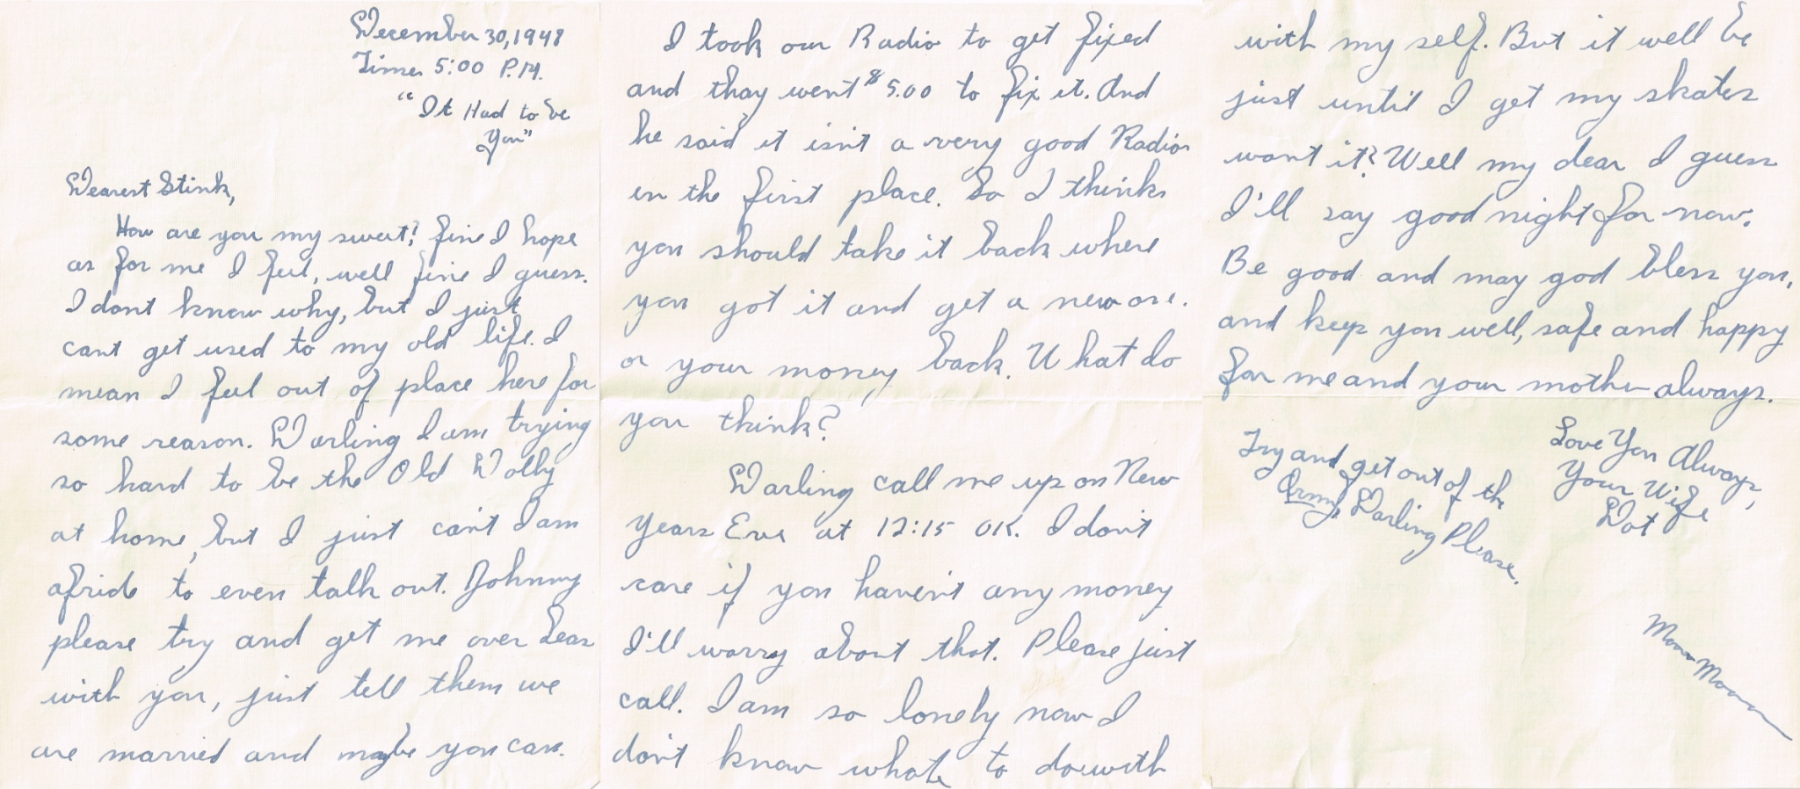 December 30, 1948
Time 5:00 P.M.
"It Had to be
You"
Dearest Stink,
How are you my sweet? fine I hope
as for me I feel, well fine I guess.
I dont know why, but I just
cant get used to my old life. I
mean I feel out of place here for
some reason. Darling I am trying
so hard to be the Old Dolly
at home, but I just can't I am
afride to even talk out. Johnny
please try and get me over dear
with you, just tell them we
are married and maybe you can.
I took our Radio to get fixed
and thay went $5.00 to fix it. And
he said it isn't a very good Radio
in the first place. So I think
you should take it back where
you got it and get a new one.
or your money back. What do
you think?
Darling call me up on New
Years Eve at 12:15 OK. I don't
care if you haven't any money
I'll worry about that. Please just
call. I am so lonely now I
don't know whate to do with
with my self. But it well be
just until I get my skates
wont it? Well my dear I guess
I'll say good night for now.
Be good and may god bless you,
and keep you well, safe and happy
for me and your mother always.
Love You Always,
Your Wife
Dot
Try and get out of the
Army, Darling Please.